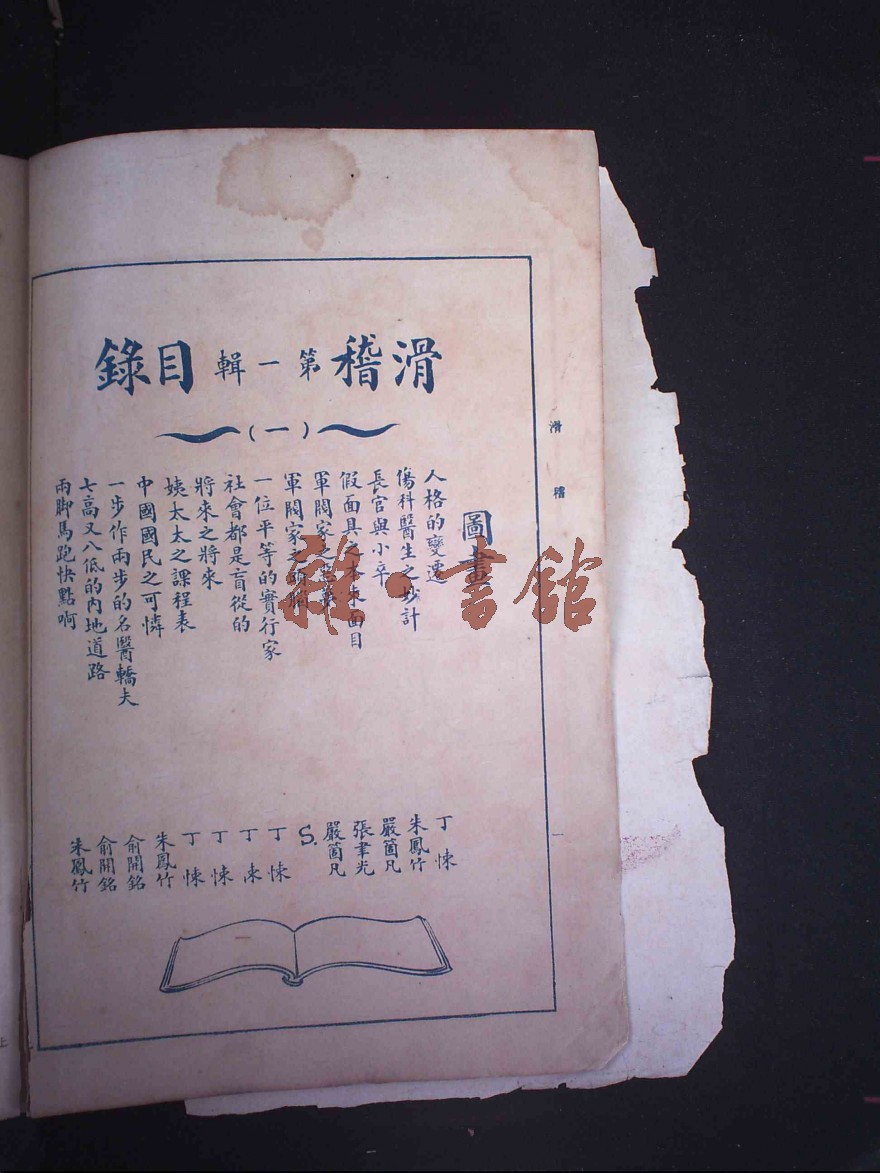 滑稽第一輯目錄
（一）
圖畫
人格的變遷　丁悚
傷科醫生之妙計　朱鳳竹
長官與小卒　嚴箇凡
假面具之本來面目　張聿光
軍閥家之　嚴箇凡
軍閥家之　S.
一位平等的實行家　丁悚
社會都是盲從的　丁悚
將來之將來　丁悚
姨太太之課程表　丁悚
中國國民之可憐　朱鳳竹
一步作兩步的名醫轎夫　俞開銘
七高又八低的內地道路　俞開銘
兩脚馬跑快點啊　朱鳳竹
滑稽
一
雜·書館
上